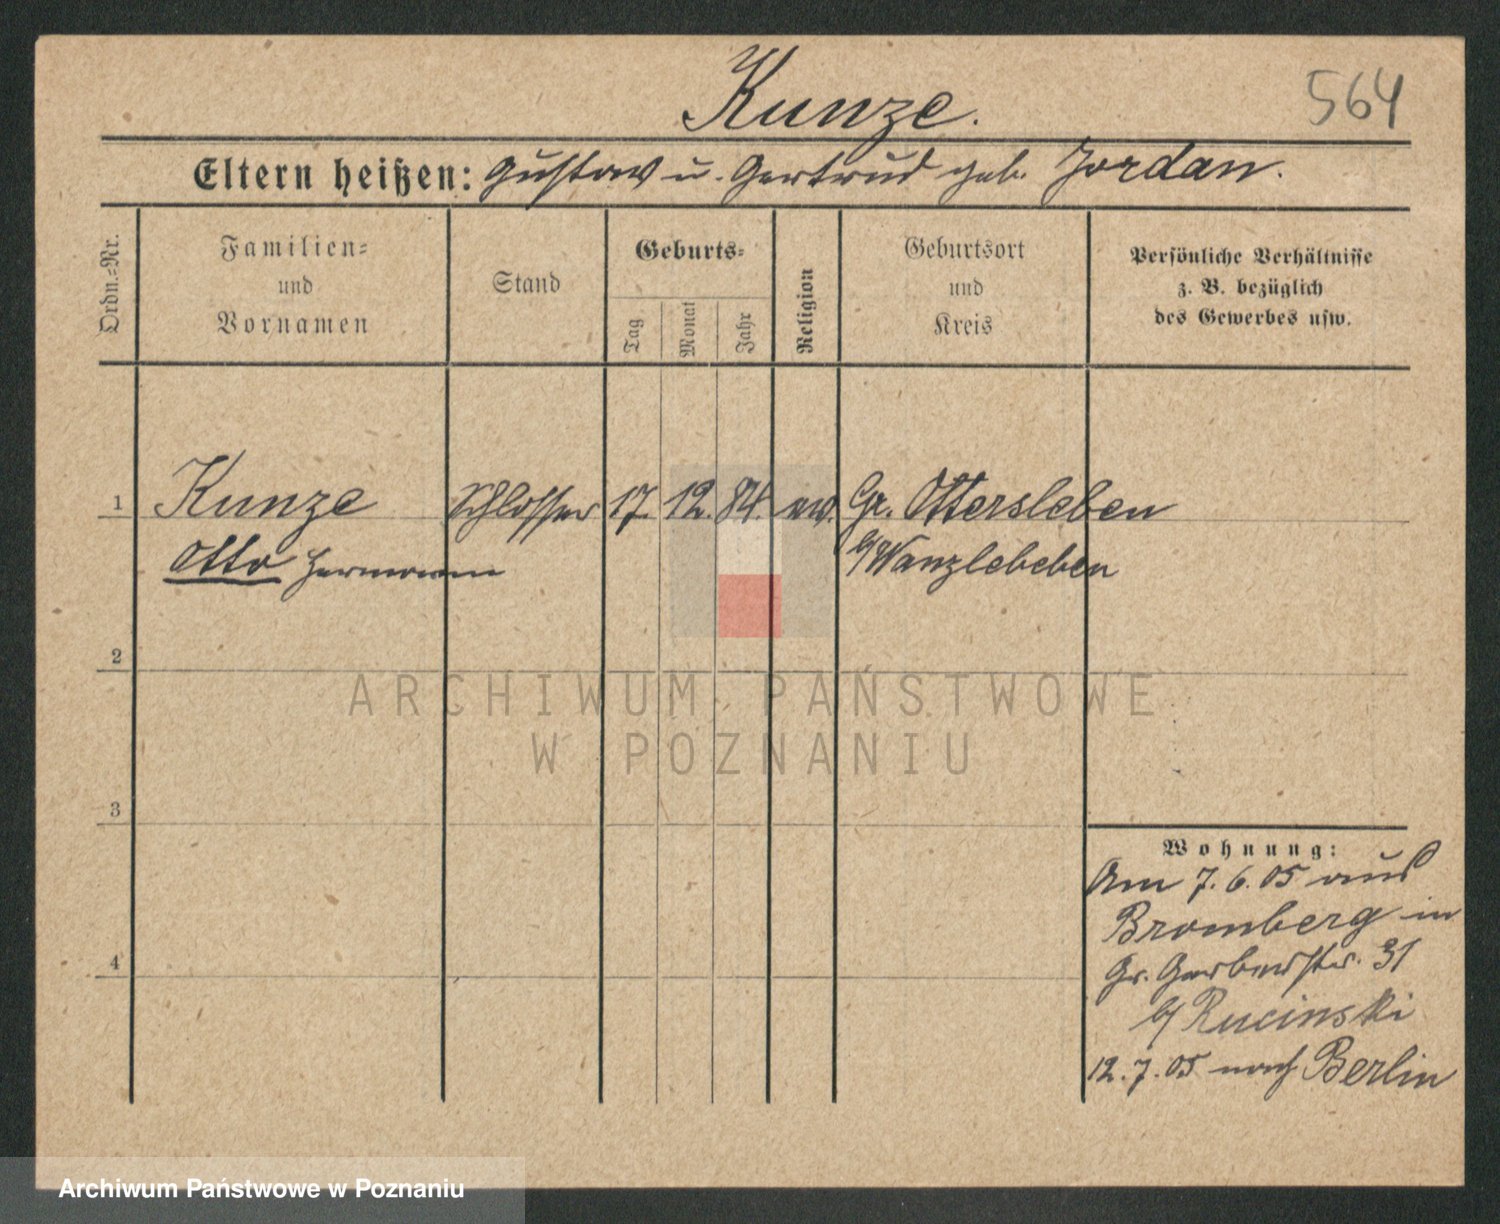 Kunze.
564
Eltern heißen: Gustav u. Gertrud geb. Jordan.
Ordn.=Nr.
Familien=
und
Vornamen
Stand
Geburts=
Tag
Monat
Jahr
Religion
Geburtsort
und
Kreis
Persönliche Verhältnisse
z. B. bezüglich
des Gewerbes usw.
1 Kunze Schlosser 17. 12. 84. ev. Gr. Ottersleben
Otto Hermann b/Wanzlebeben
2
3
4
Wohnung:
Am 7. 6. 05 aus
Bromberg in
Gr. Gerberstr. 31
b/ Rucinski
12. 7. 05 nach Berlin
ARCHIWUM PAŃSTWOWE
W POZNANIU
Archiwum Państwowe w Poznaniu